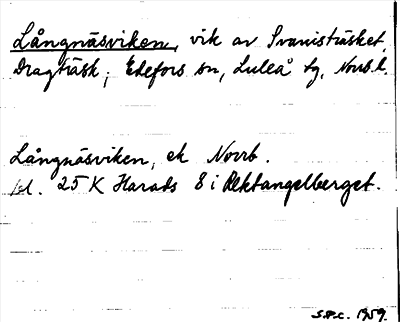 Långnäsviken, vik av Svanisträsket,
Dragträsk, Edefors sn, Luleå tg, Norrb.l.
Långnäsviken, ek Norrb.
bl. 25 K Harads 8 i Rektangelberget.
S.P.C. 1959.